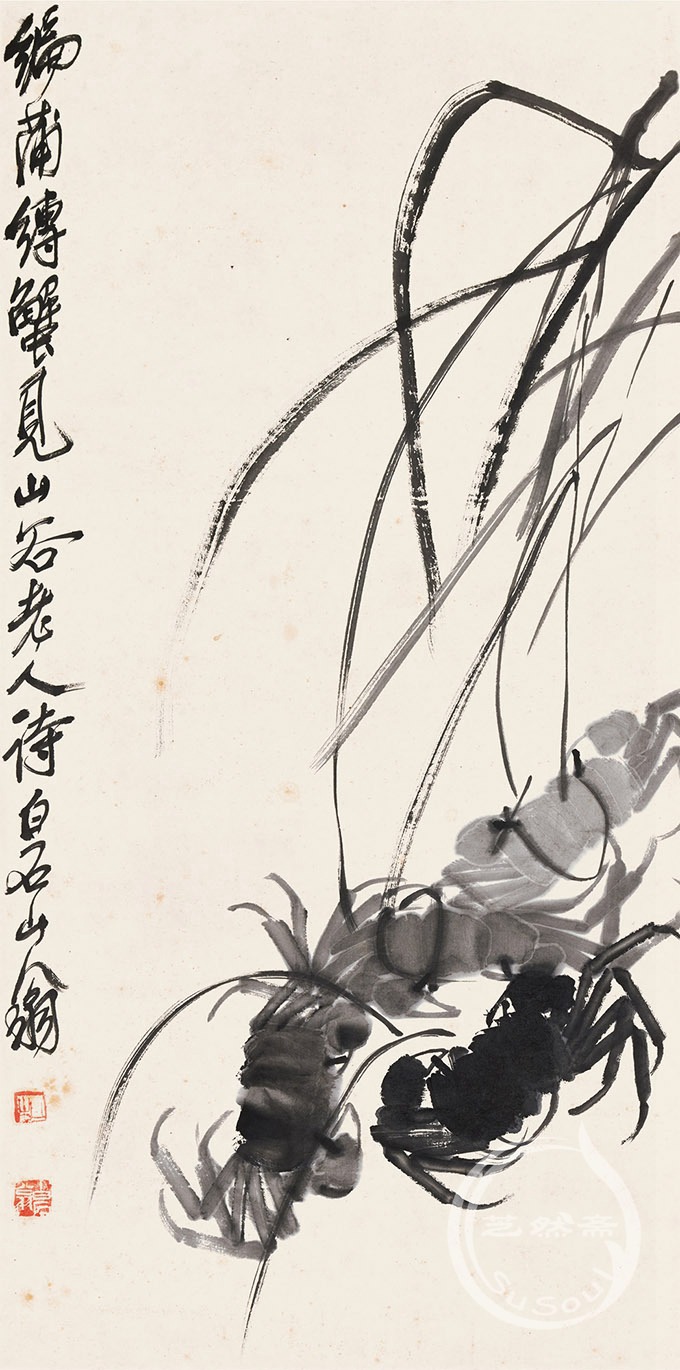 编蒲缚蟹見山谷老人诗白石山翁
艺然斋
SuSoul